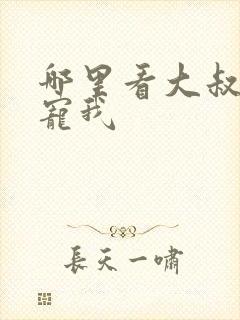 哪里看大叔
寵我
長天一嘯